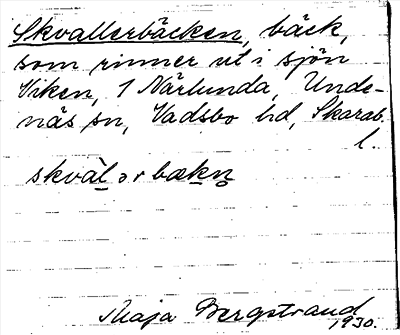 Skvallerbäcken, bäck,
som rinner ut i sjön
Viken, 1 Närlunda, Unde-
näs sn, Vadsbo hd, Skarab.
l.
skvàl̠ər bækn̥
Maja Bergstrand
1930.